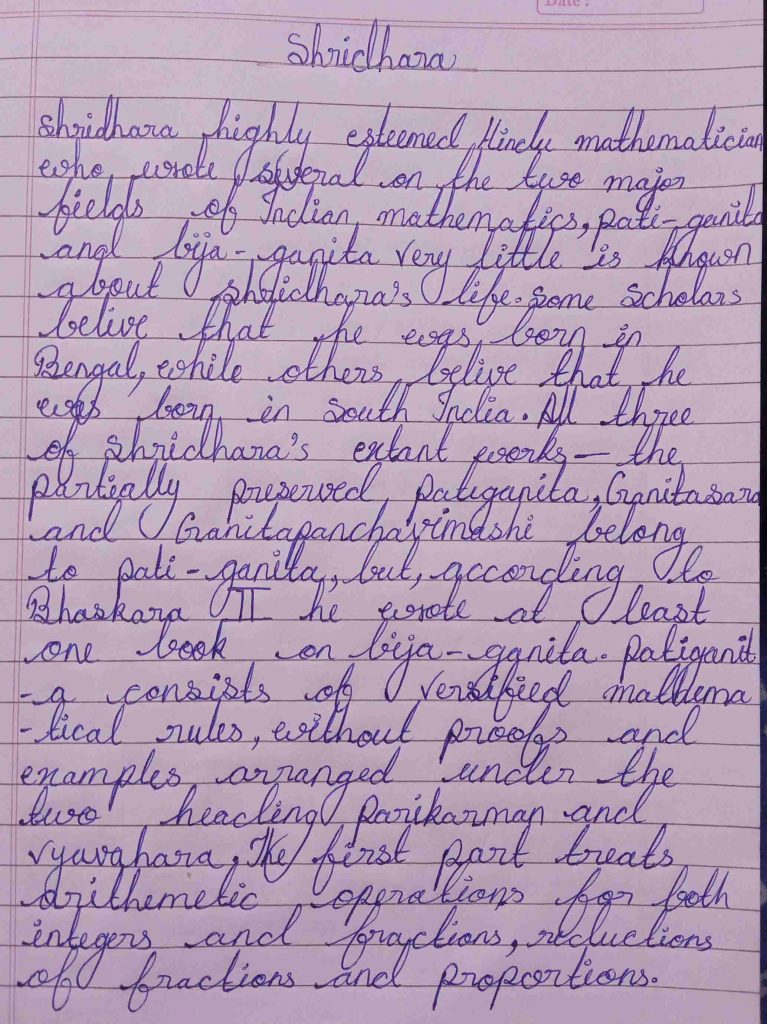 Date:
Shridhara
Shridhara highly esteemed Hindu mathematician
who wrote several on the two major
fields of Indian mathematics, pati-ganita
and bija-ganita very little is known
about shridhara's life. Some scholars
belive that he was born in
Bengal, while others belive that he
was born in South India. All three
of shridhara's extant works— the
partially preserved patiganita, Ganitasara
and Ganitapanchavimashi belong
to pati-ganita, but, according to
Bhaskara II he wrote at least
one book on bija-ganita. patiganit
-a consists of versified mathema
-tical rules, without proofs and
examples arranged under the
two heading parikarman and
vyavahara. The first part treats
arithemetic operations for both
integers and fractions, reductions
of fractions and proportions.